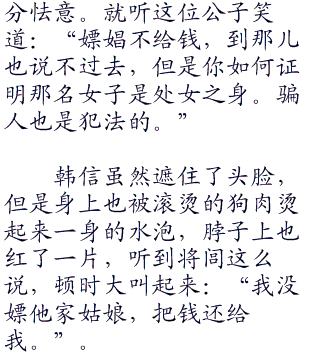 分怯意。就听这位公子笑
道：“嫖娼不给钱，到那儿
也说不过去，但是你如何证
明那名女子是处女之身。骗
人也是犯法的。”
韩信虽然遮住了头脸，
但是身上也被滚烫的狗肉烫
起来一身的水泡，脖子上也
红了一片，听到将闾这么
说，顿时大叫起来：“我没
嫖他家姑娘，把钱还给
我。”。